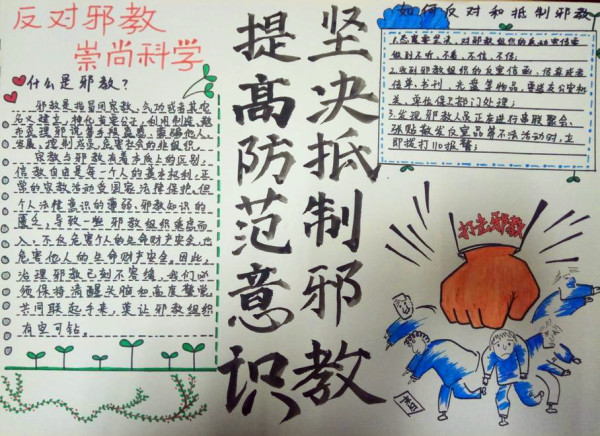 反对邪教
崇尚科学
什么是邪教？
邪教是指冒用宗教、气功或者其它
名义建立,神化首要分子,利用制造、散
布歪理邪说等手段蛊惑、蒙骗他人,
发展、控制成员,危害社会的非法组织。
宗教与邪教有着本质上的区别,
信教自由是每一个人的基本权利,正
常的宗教活动受国家法律保护。但
个人法律意识的薄弱,邪教知识的
匮乏,导致一些邪教组织乘虚而
入,不仅危害个人的生命财产安全,也
危害他人的生命财产安全。因此,
治理邪教已刻不容缓,我们必
须保持清醒头脑和高度警觉
共同联起手来,莫让邪教组织
有空可钻。
坚决抵制邪教
提高防范意识
如何反对和抵制邪教
做到不听、不看、不信、不传;
2.收到邪教组织的反宣信函、信息或者
传单、书刊、光盘等物品,要送交公安机
关、单位保卫部门处理;
3.发现邪教人员正在进行串联聚会、
张贴散发反宣品等不法活动时,立
即拨打110报警;
打击邪教